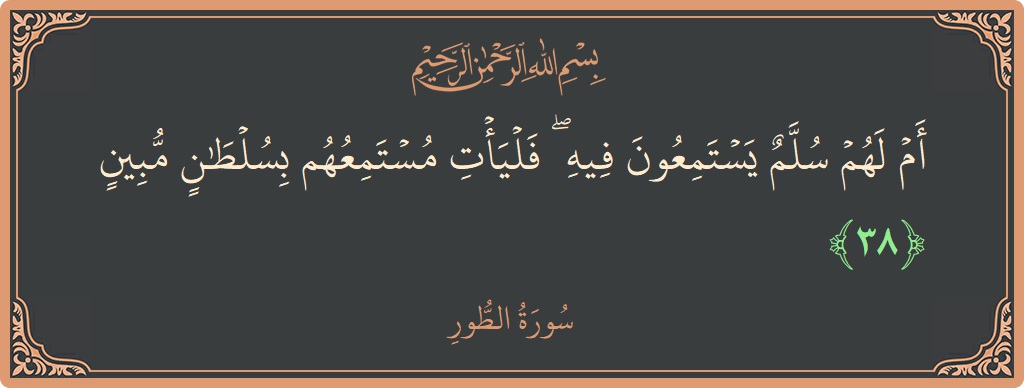 بِسْمِ اللَّهِ الرَّحْمَٰنِ الرَّحِيمِ
أَمۡ لَهُمۡ سُلَّمٌ يَسۡتَمِعُونَ فِيهِۖ فَلۡيَأۡتِ مُسۡتَمِعُهُم بِسُلۡطَٰنٖ مُّبِينٍ
﴿٣٨﴾
سُورَةُ الطُّورِ